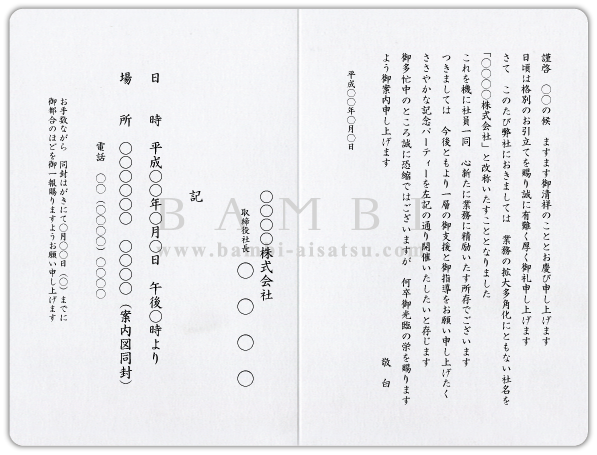 謹啓　〇〇の候　ますます御清祥のこととお慶び申し上げます
日頃は格別のお引立てを賜り誠に有難く厚く御礼申し上げます
さて　このたび弊社におきましては　業務の拡大多角化にともない社名を
「〇〇〇〇株式会社」と改称いたすこととなりました
これを機に社員一同　心新たに業務に精励いたす所存でございます
つきましては　今後ともより一層の御支援と御指導をお願い申し上げたく
ささやかな記念パーティーを左記の通り開催いたしたいと存じます
御多忙中のところ誠に恐縮ではございますが　何卒御光臨の栄を賜ります
よう御案内申し上げます
敬白
平成〇〇年〇月〇日
〇〇〇〇株式会社
取締役社長　〇〇〇〇
記
日　時　平成〇〇年〇月〇日　午後〇時より
場　所　〇〇〇〇〇　〇〇〇〇（案内図同封）
電話　〇〇（〇〇〇〇）〇〇〇〇
お手数ながら　同封はがきにて〇月〇〇日（〇）までに
御都合のほどを御一報賜りますようお願い申し上げます
BAMB
www.bambi-aisatsu.com